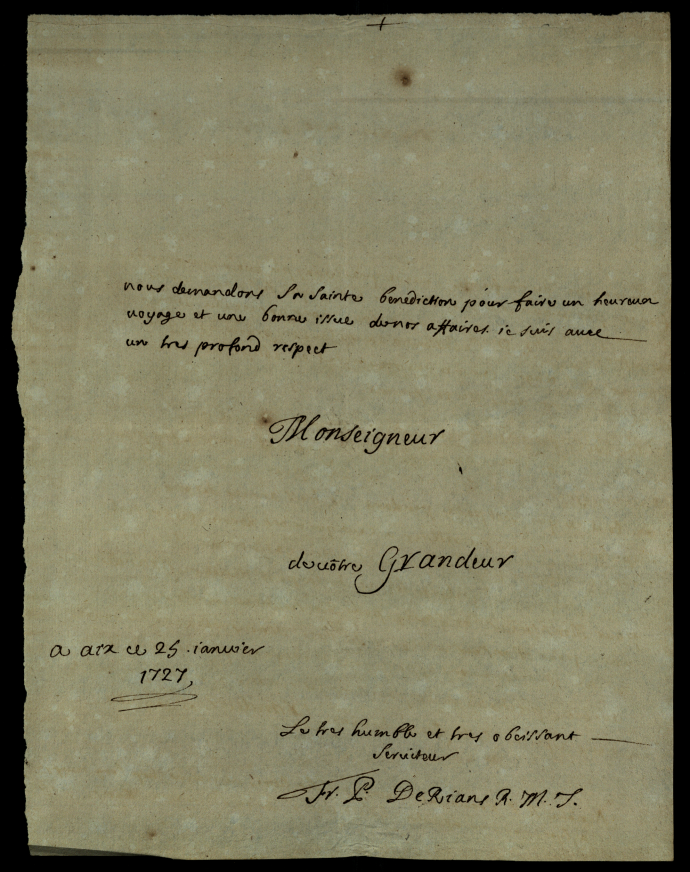 nous demandons Sa Sainte benediction pour faire un heureux
voyage et une bonne issue de nos affaires. ie suis auec
un tres profond respect
Monseigneur
de uôtre Grandeur
a aix ce 25 ianuier
1727
Le tres humble et tres obeissant
Seruiteur
Fr. P. DeRians R. M. J.